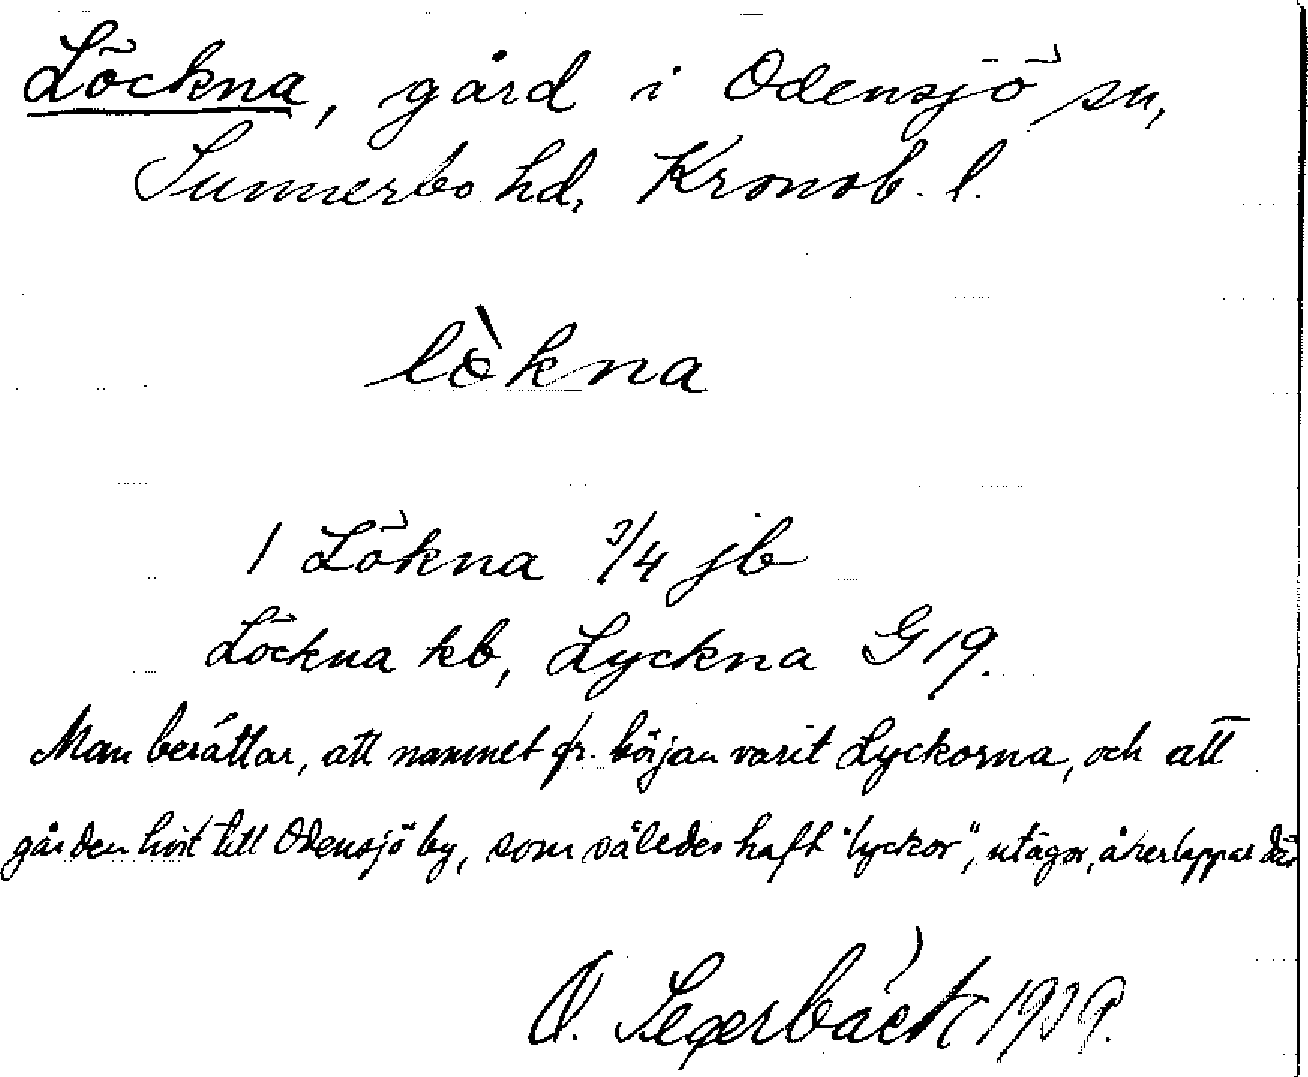 Löckna, gård i Odensjö sn,
Sunnerbo hd, Kronob. l.
lò̀kna
1 Lökna 3/4 jb
Löckna kb, Lyckna G 19.
Man berättar, att namnet fr. början varit Lyckorna, och att
gården hört till Odensjö by, som således haft "lyckor", utägor, åkerlappar där
O. Segerbäck 1939.